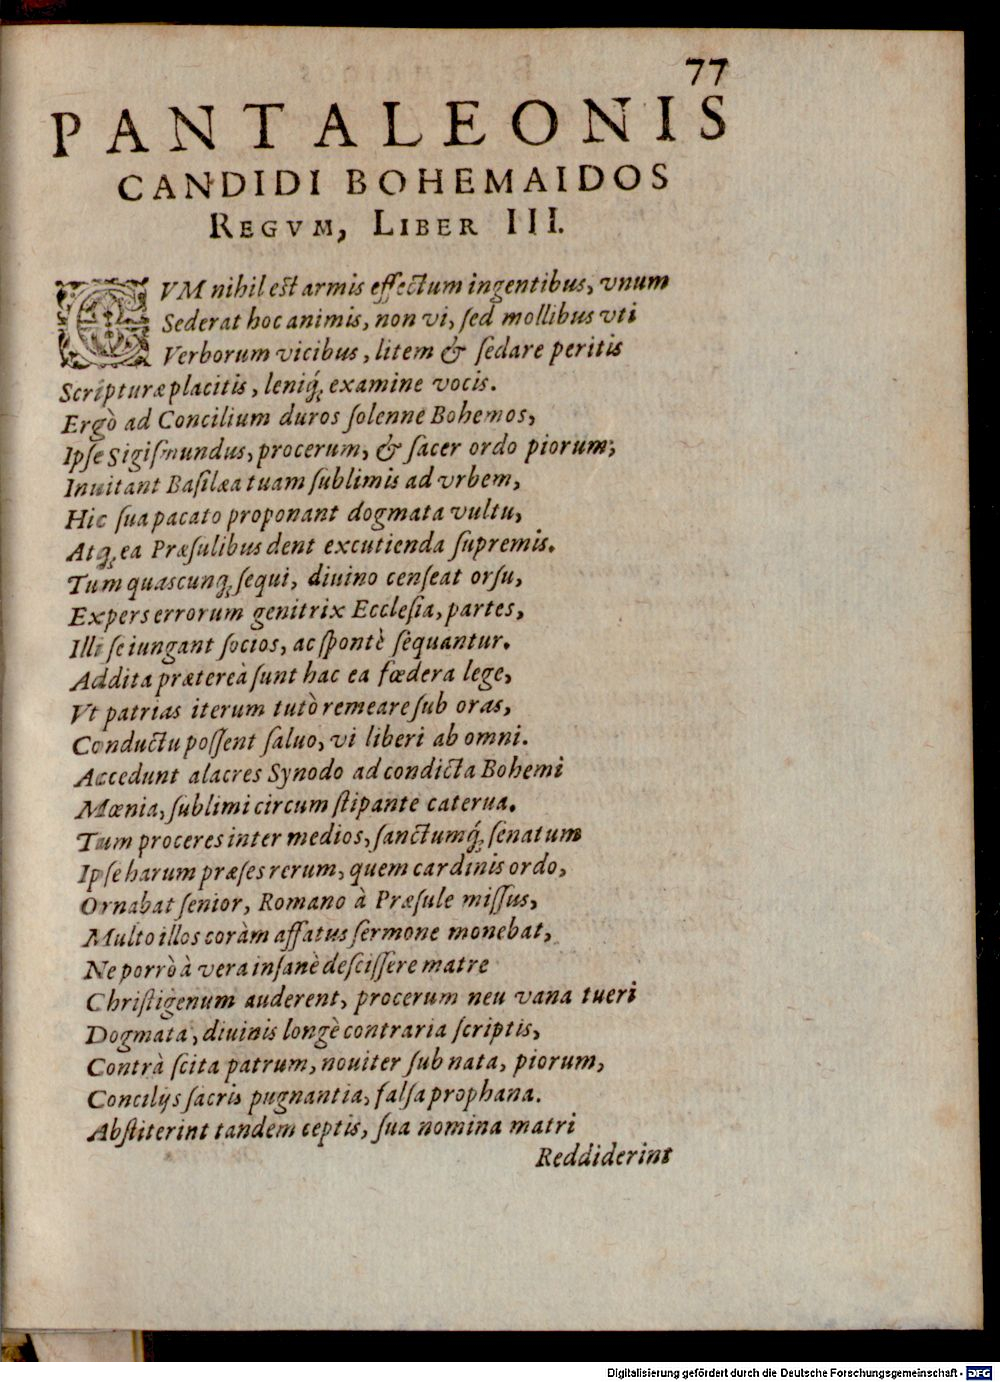 77
PANTALEONIS
CANDIDI BOHEMAIDOS
REGVM, LIBER III.
CVM nihil est armis effectum ingentibus, vnum
Sederat hoc animis, non vi, ſed mollibus vti
Verborum vicibus, litem & ſedare peritis
Scripturæ placitis, leniq́; examine vocis.
Ergò ad Concilium duros ſolenne Bohemos,
Ipſe Sigiſmundus, procerum, & ſacer ordo piorum;
Inuitant Baſilæa tuam ſublimis ad vrbem,
Hic ſua pacato proponant dogmata vultu,
Atq; ea Præſulibus dent excutienda ſupremis.
Tum quascunq; ſequi, diuino cenſeat orſu,
Expers errorum genitrix Eccleſia, partes,
Illi ſe iungant ſocios, ac ſpontè ſequantur.
Addita prætereà ſunt hac ea fœdera lege,
Vt patrias iterum tutò remeare ſub oras,
Conductu poſſent ſaluo, vi liberi ab omni.
Accedunt alacres Synodo ad condicta Bohemi
Mœnia, ſublimi circum ſtipante caterua.
Tum proceres inter medios, ſanctumq́; ſenatum
Ipſe harum præſes rerum, quem cardinis ordo,
Ornabat ſenior, Romano à Præſule miſſus,
Multo illos coràm affatus ſermone monebat,
Ne porrò à vera inſanè deſciſſere matre
Chriſtigenum auderent, procerum neu vana tueri
Dogmata, diuinis longè contraria ſcriptis,
Contrà ſcita patrum, nouiter ſub nata, piorum,
Concilijs ſacris pugnantia, falſa prophana.
Abſtiterint tandem ceptis, ſua nomina matri
Reddiderint
Digitalisierung gefördert durch die Deutsche Forschungsgemeinschaft - DFG